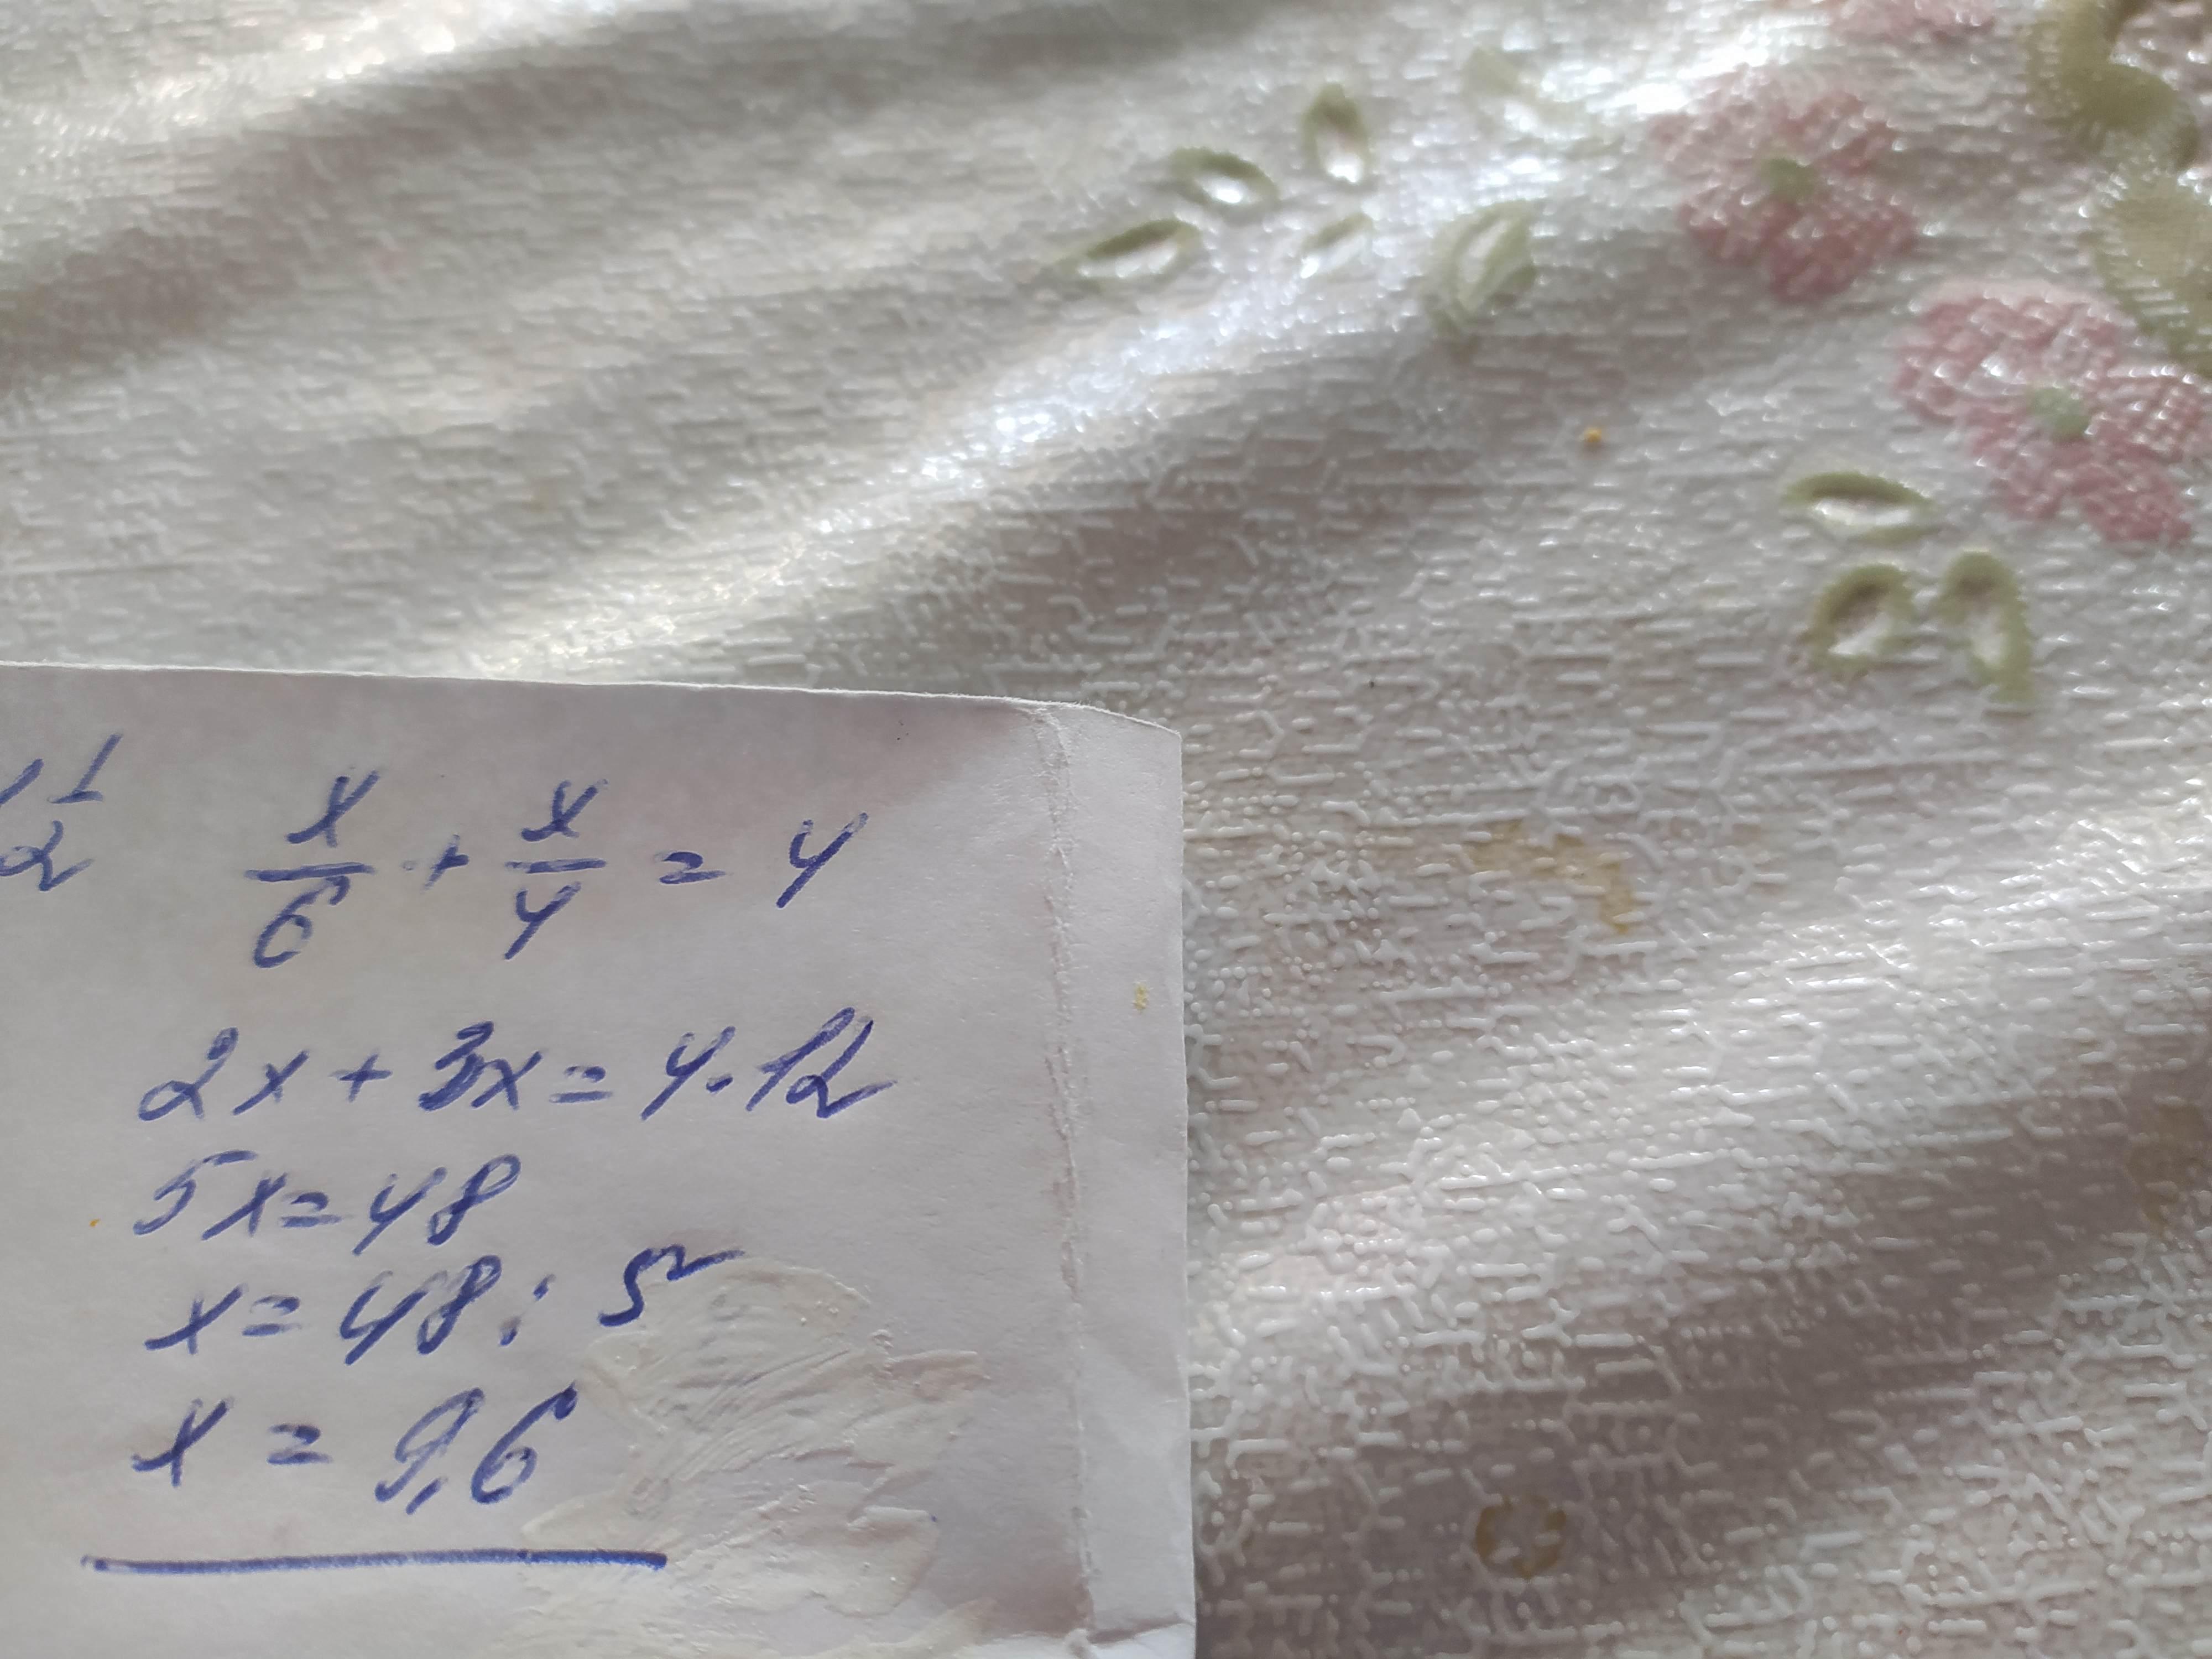 1 1
2 x/6 + x/4 = 4
2x + 3x = 4·12
5x = 48
x = 48 : 5
x = 9,6